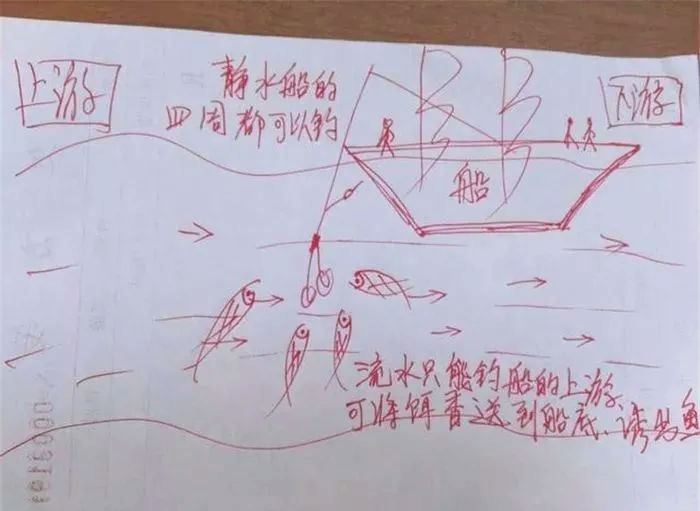 上游
静水船的
四周都可以钓
下游
船
流水只能钓船的上游
可将饵香送到船底、诱多鱼